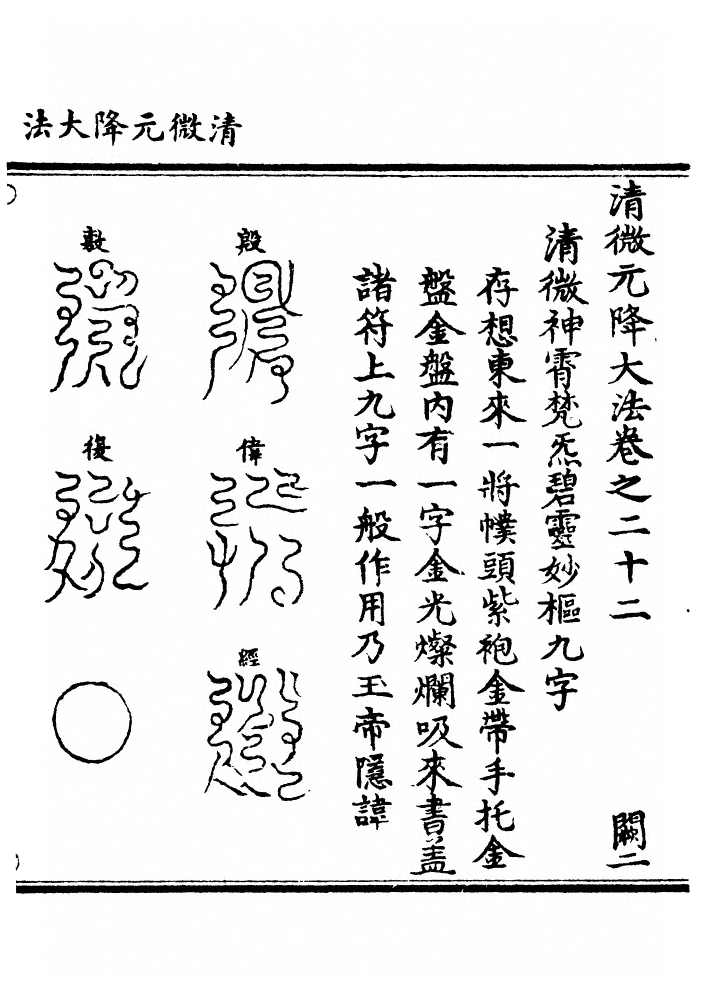 清微元降大法
清微元降大法卷之二十二 闕二
清微神霄梵炁碧靈妙樞九字
存想東來一將幞頭紫袍金帶手托金
盤金盤內有一字金光燦爛吸來書蓋
諸符上九字一般作用乃玉帝隱諱
殷
偉
經
數
復